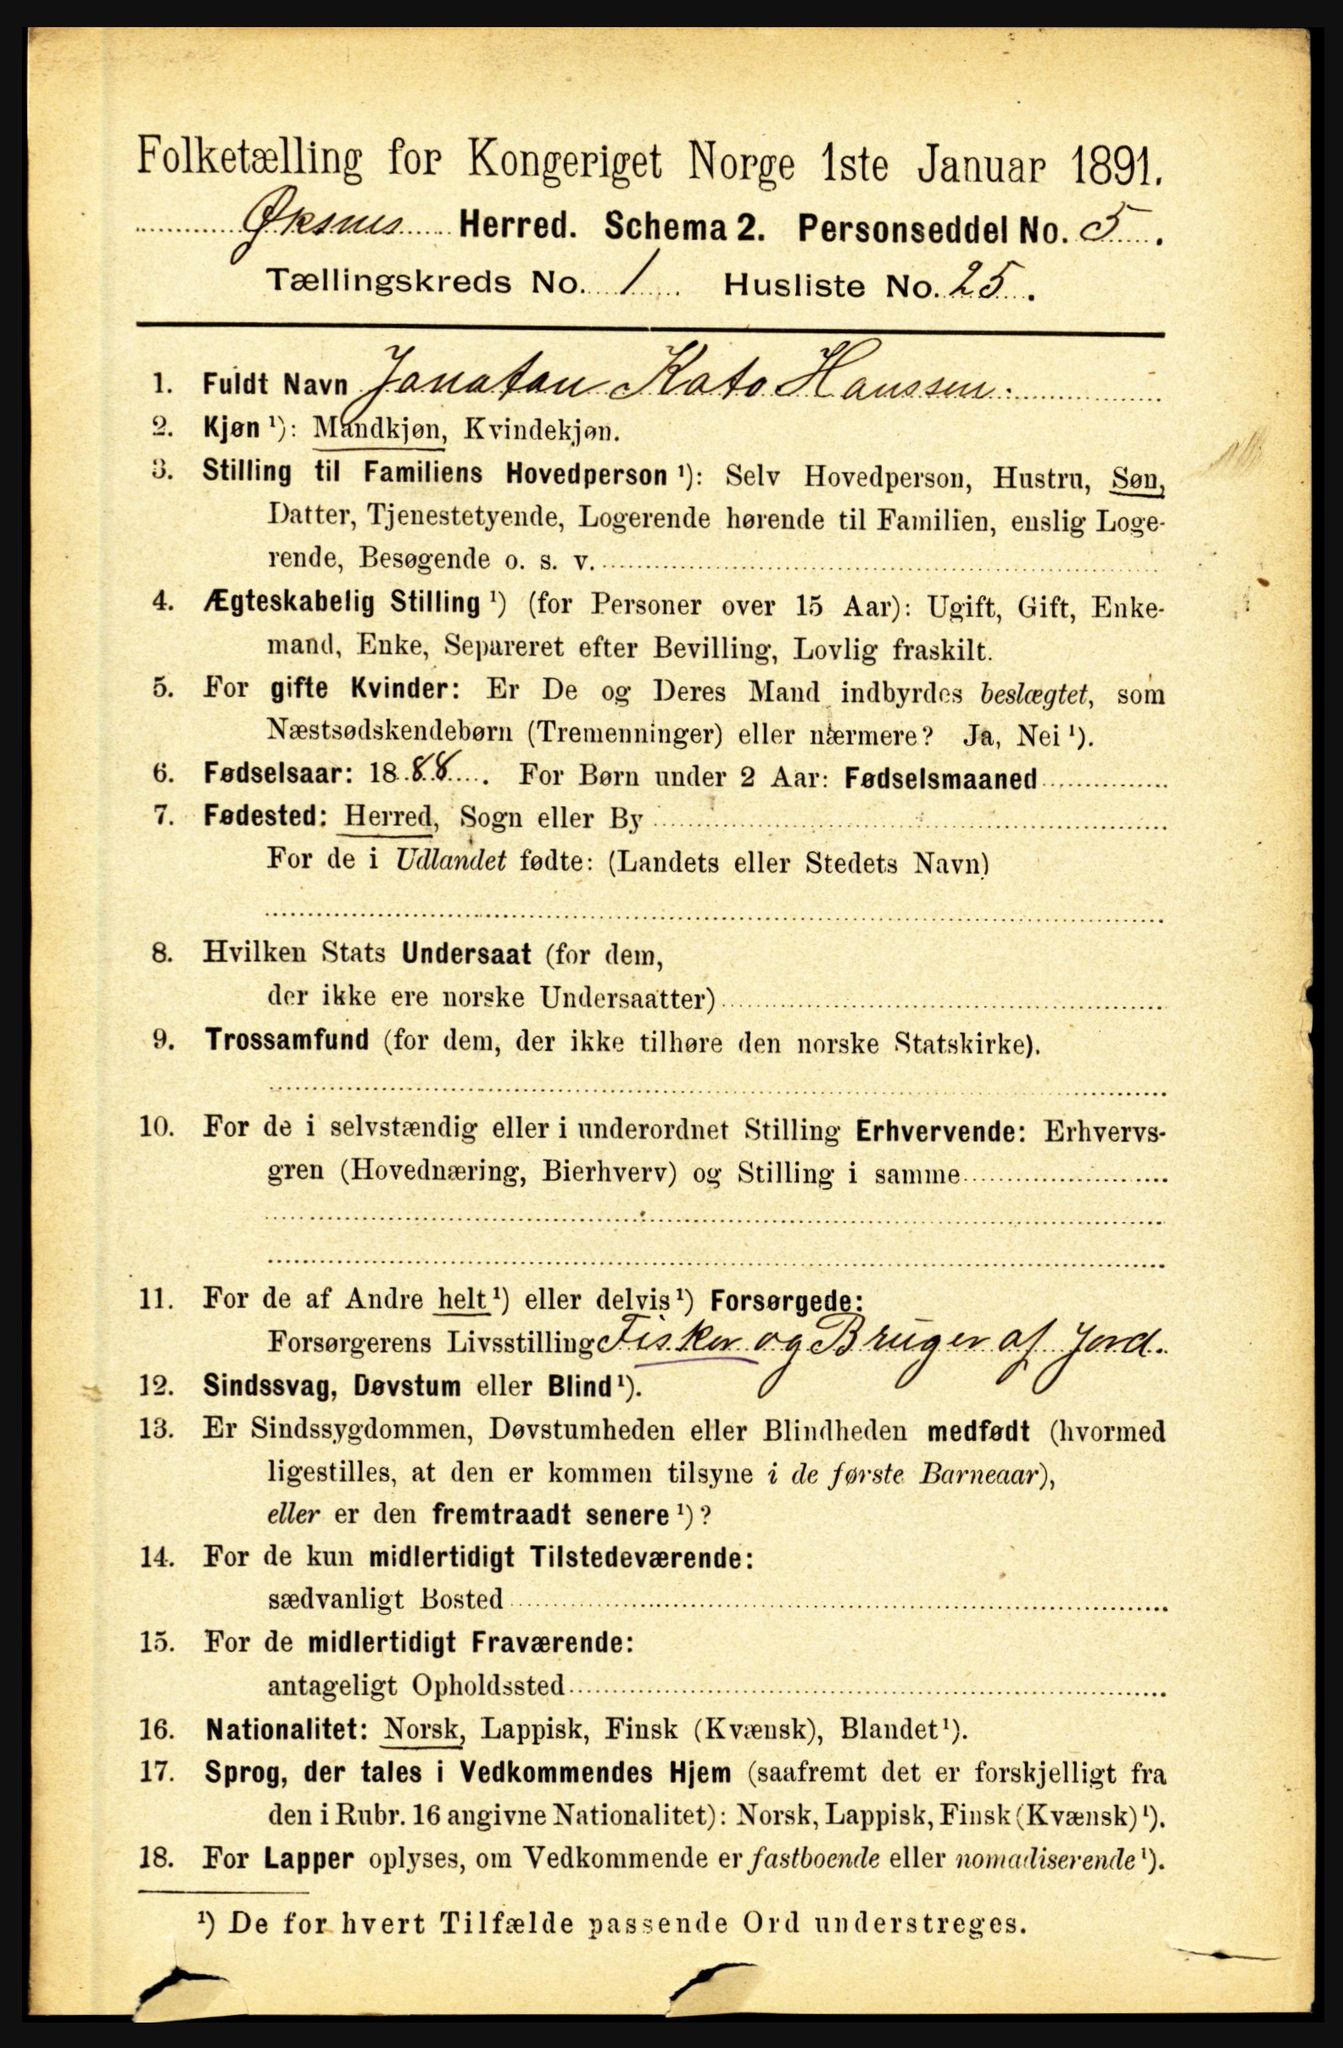 Folketælling for Kongeriget Norge 1ste Januar 1891.
Øksnes Herred. Schema 2. Personseddel No. 5.
Tællingskreds No. 1 Husliste No. 25.
1. Fuldt Navn Jonatan Kato Hanssen.
2. Kjøn ¹): Mandkjøn, Kvindekjøn.
3. Stilling til Familiens Hovedperson ¹): Selv Hovedperson, Hustru, Søn,
Datter, Tjenestetyende, Logerende hørende til Familien, enslig Loge-
rende, Besøgende o. s. v.
4. Ægteskabelig Stilling ¹) (for Personer over 15 Aar): Ugift, Gift, Enke-
mand, Enke, Separeret efter Bevilling, Lovlig fraskilt.
5. For gifte Kvinder: Er De og Deres Mand indbyrdes beslægtet, som
Næstsødskendebørn (Tremenninger) eller nærmere? Ja, Nei ¹).
6. Fødselsaar: 1888. For Børn under 2 Aar: Fødselsmaaned
7. Fødested: Herred, Sogn eller By
For de i Udlandet fødte: (Landets eller Stedets Navn)
8. Hvilken Stats Undersaat (for dem,
der ikke ere norske Undersaatter)
9. Trossamfund (for dem, der ikke tilhøre den norske Statskirke).
10. For de i selvstændig eller i underordnet Stilling Erhvervende: Erhvervs-
gren (Hovednæring, Bierhverv) og Stilling i samme
11. For de af Andre helt ¹) eller delvis ¹) Forsørgede:
Forsørgerens Livsstilling Fisker og Bruger af Jord.
12. Sindssvag, Døvstum eller Blind ¹).
13. Er Sindssygdommen, Døvstumheden eller Blindheden medfødt (hvormed
ligestilles, at den er kommen tilsyne i de første Barneaar),
eller er den fremtraadt senere ¹)?
14. For de kun midlertidigt Tilstedeværende:
sædvanligt Bosted
15. For de midlertidigt Fraværende:
antageligt Opholdssted
16. Nationalitet: Norsk, Lappisk, Finsk (Kvænsk), Blandet ¹).
17. Sprog, der tales i Vedkommendes Hjem (saafremt det er forskjelligt fra
den i Rubr. 16 angivne Nationalitet): Norsk, Lappisk, Finsk (Kvænsk) ¹).
18. For Lapper oplyses, om Vedkommende er fastboende eller nomadiserende ¹).
¹) De for hvert Tilfælde passende Ord understreges.